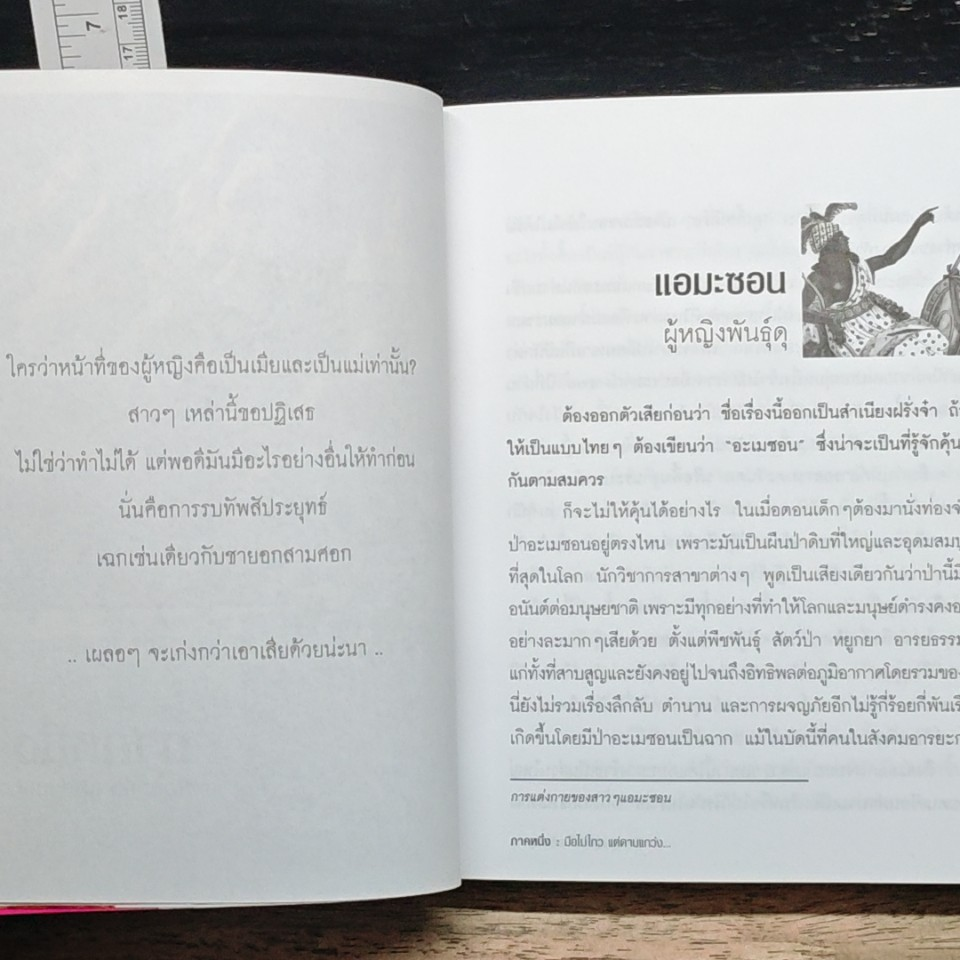 7
18
17
ใครว่าหน้าที่ของผู้หญิงคือเป็นเมียและเป็นแม่เท่านั้น?
สาวๆ เหล่านี้ขอปฏิเสธ
ไม่ใช่ว่าทำไม่ได้ แต่พอดีมันมีอะไรอย่างอื่นให้ทำก่อน
นั่นคือการรบทัพสัประยุทธ์
เฉกเช่นเดียวกับชายอกสามศอก
.. เผลอๆ จะเก่งกว่าเอาเสียด้วยน่ะนา ..
แอมะซอน
ผู้หญิงพันธุ์ดุ
ต้องออกตัวเสียก่อนว่า ชื่อเรื่องนี้ออกเป็นสำเนียงฝรั่งจ๋า
ให้เป็นแบบไทยๆ ต้องเขียนว่า "อะเมซอน" ซึ่งน่าจะเป็นที่รู้จักคุ้น
กันตามสมควร
ก็จะไม่ให้คุ้นได้อย่างไร ในเมื่อตอนเด็กๆต้องมานั่งท่อง
ป่าอะเมซอนอยู่ตรงไหน เพราะมันเป็นผืนป่าดิบที่ใหญ่และอุดม
ที่สุดในโลก นักวิชาการสาขาต่างๆ พูดเป็นเสียงเดียวกันว่าป่านี้มี
อนันต์ต่อมนุษยชาติ เพราะมีทุกอย่างที่ทำให้โลกและมนุษย์ดำรงคง
อย่างละมากๆเสียด้วย ตั้งแต่พืชพันธุ์ สัตว์ป่า หยูกยา อารยธรรม
แก่ทั้งที่สาบสูญและยังคงอยู่ไปจนถึงอิทธิพลต่อภูมิอากาศโดยรวมของ
นี่ยังไม่รวมเรื่องลึกลับ ตำนาน และการผจญภัยอีกไม่รู้กี่ร้อยกี่พัน
เกิดขึ้นโดยมีป่าอะเมซอนเป็นฉาก แม้ในบัดนี้ที่คนในสังคมอารยะ
การแต่งกายของสาวๆแอมะซอน
ภาคหนึ่ง : มือไม่ไกว แต่ดาบแกว่ง...